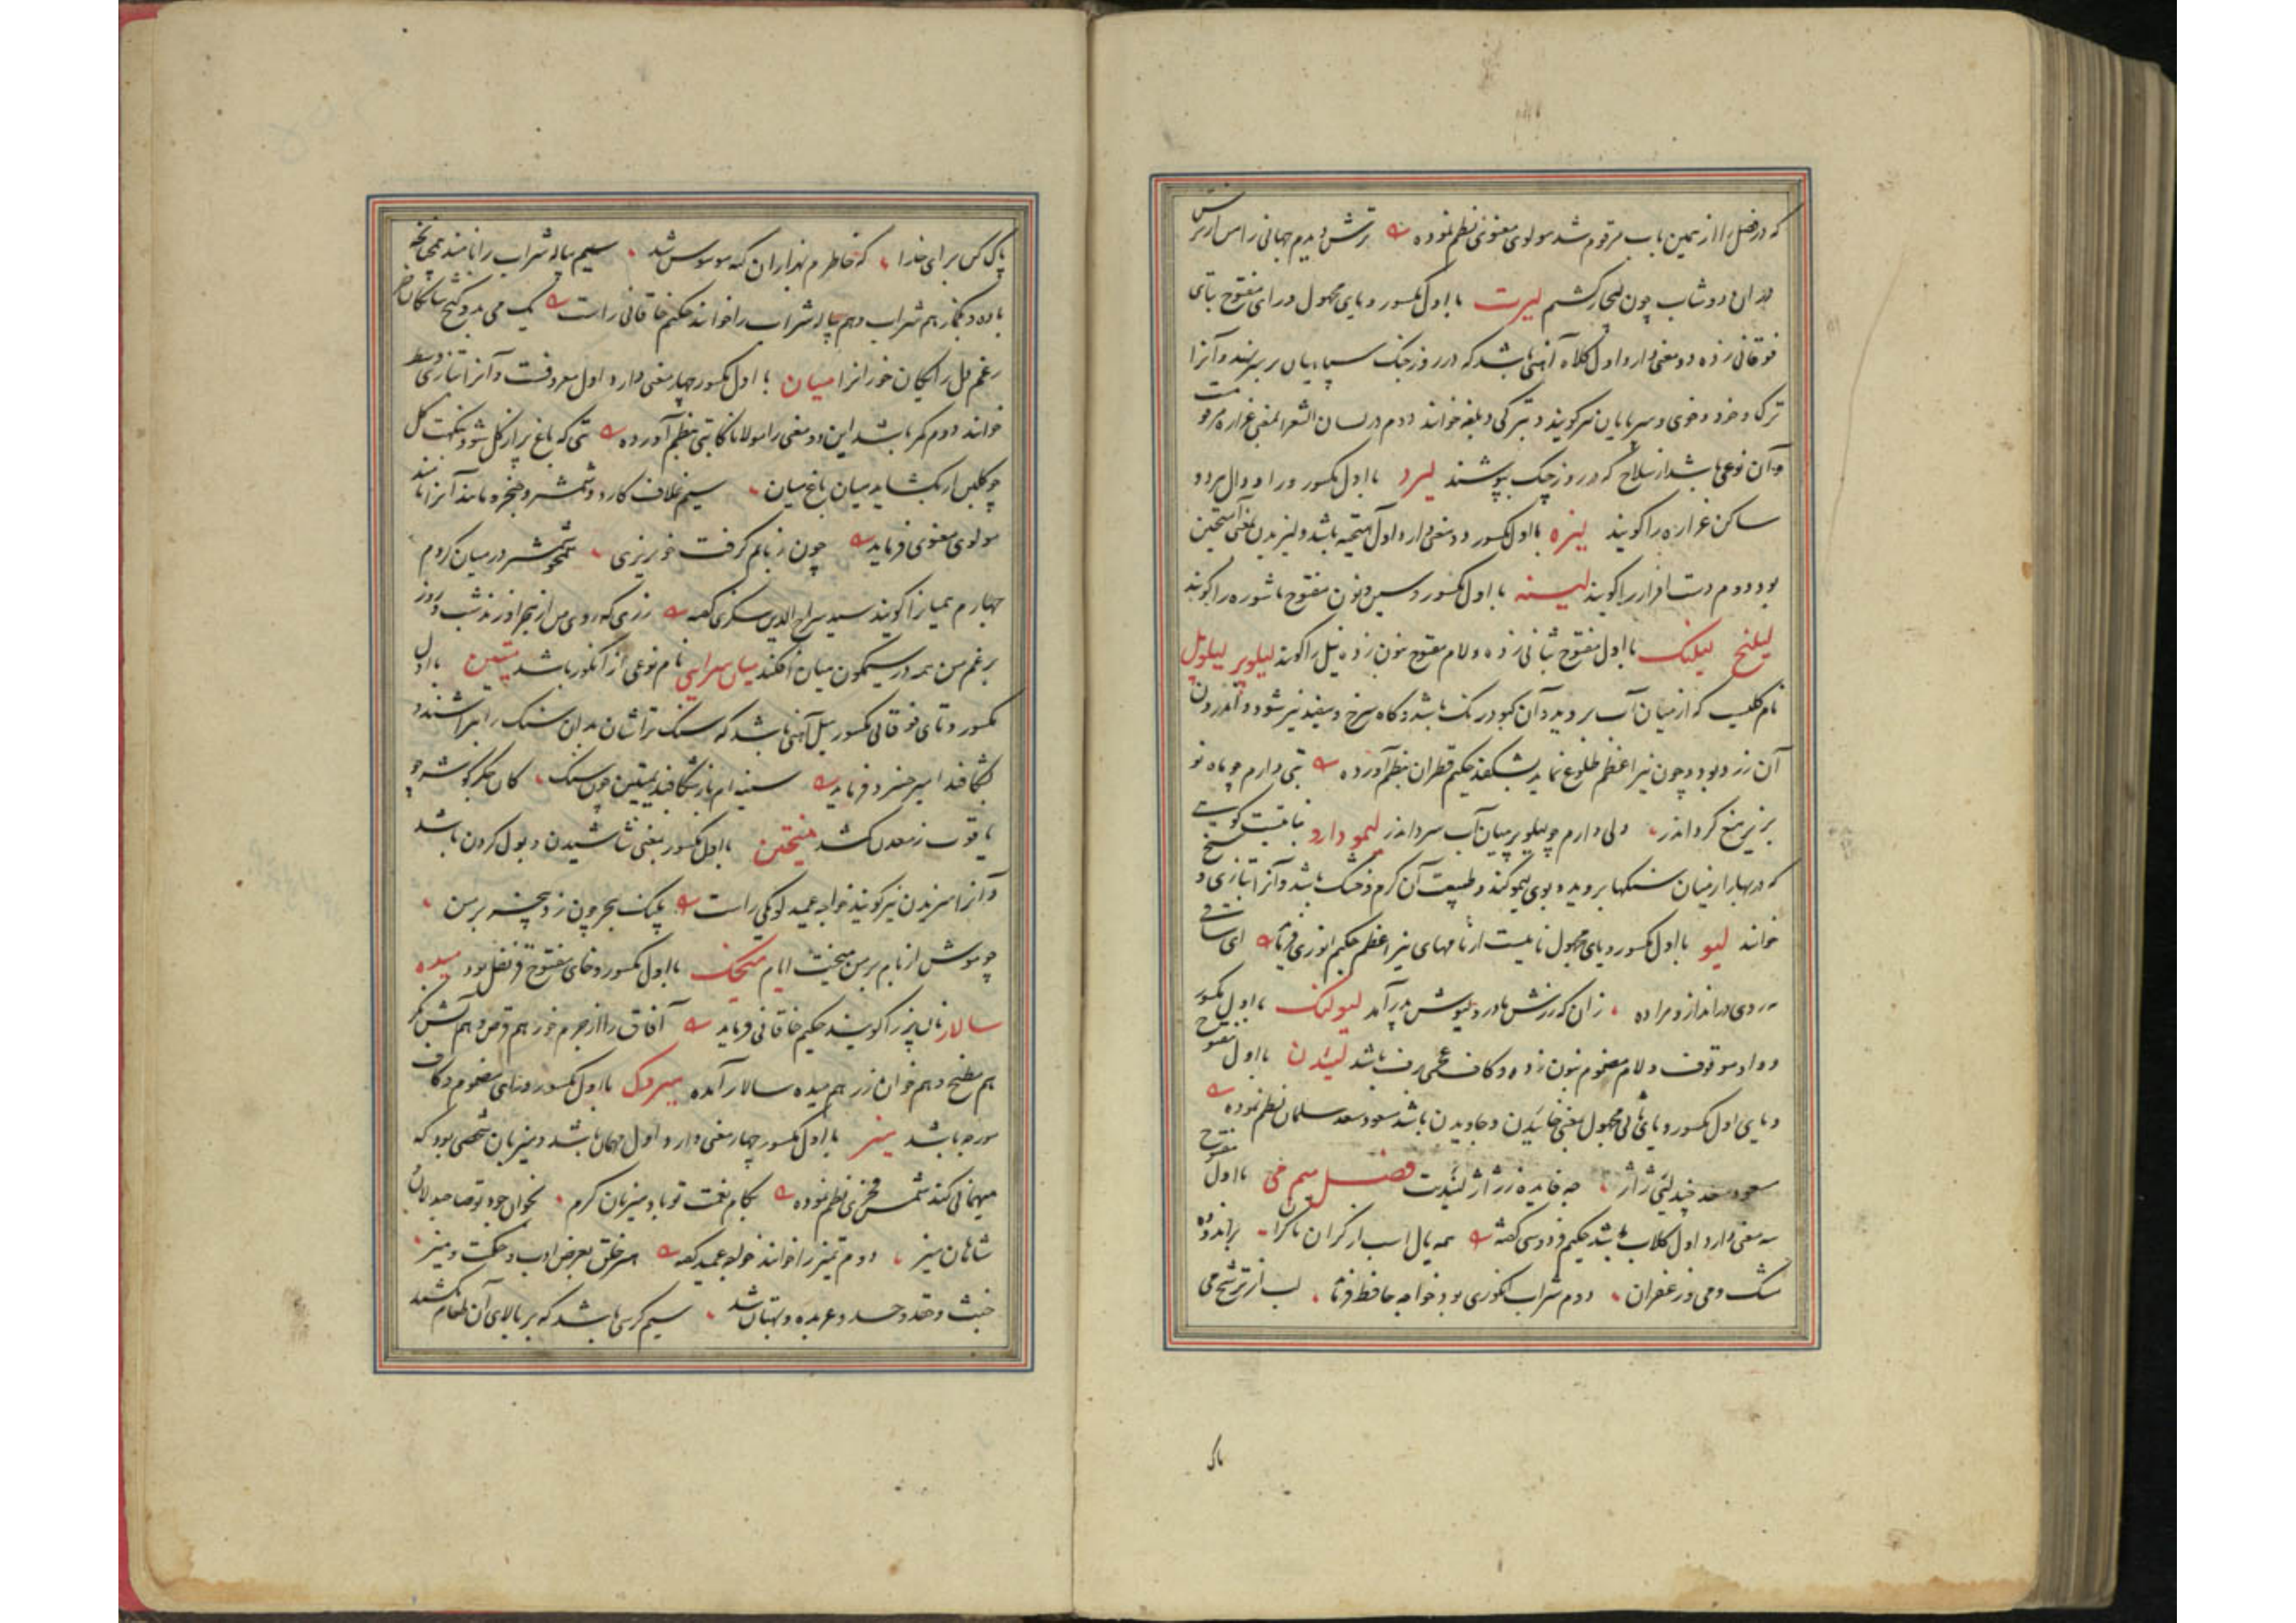 که در فصل را از همین باب مرقوم شد مولوی معنوی نظم نموده ترش دیدم جهانی را من از ترس
در ان دوشاب چون لیچار کشتم لیرت با اول مکسور و یای مجهول و رای مفتوح بتای
فوقانی زده دو معنی دارد اول کلاه آهنی باشد که در روز جنک سپاهیان بر سر نهند و آنرا
ترک و خود و خوی و سرپایان نیز کویند و بترکی دبلغه خوانند دوم در لسان الشعرا بمعنی غراره مرقومست
و آن نوعی باشد از سلاح که در روز جنک پوشند لیرد با اول مکسور و را و دال هر دو
ساکن غراره را کویند لیزه با اول مکسور دو معنی دارد اول آمیخته باشد و لیزیدن بمعنی آمیختن
بود دوم دست افزار را کویند لیسنه با اول مکسور و سین و نون مفتوح ماشوره را کویند
لیلنج لیلنک با اول مفتوح بثانی زده و لام مفتوح بنون زده نیل را کویند لیلوپر لیلوپل
نام کلیست که از میان آب بروید و آن کبود رنک باشد و کاه سرخ و سفید نیز شود و اندرون
آن زرد بود و چون نیر اعظم طلوع نماید بشکفد حکیم قطران نظم آورده بتی دارم چو ماه نو
بزیر میغ کرد اندر ولی دارم چو لیلوپر میان آب سرد اندر لیمو دارو نباتیست کوهی
که در بهار از میان سنکها بروید و بوی لیمو کند و طبیعت آن کرم و خشک باشد و آنرا بتازی
خوانند لیو با اول مکسور و یای مجهول نامیست از نامهای نیر اعظم حکیم انوری فرماید ای ساقی
می روی در انداز و مرا ده زان که رزش مادر و لیوش پدر آمد لیولنک با اول مکسور
و واو موقوف و لام مضموم بنون زده و کاف عجمی رف باشد لییدن با اول مفتوح
و یای اول مکسور و یای ثانی مجهول بمعنی خاییدن و جاویدن باشد مسعود سعد سلمان نظم نموده
مسعود سعد چند لیی ژاژ چه فایده ز ژاژ لییدت فصل میم می با اول مفتوح
سه معنی دارد اول کلاب باشد حکیم فردوسی کفته همه یال اسب از کران تا کران براندوده
مشک و می و زعفران دوم شراب انکوری بود خواجه حافظ فرماید لب از ترشح می
پاک
پاک کن برای خدا که خاطرم بهزاران کنه موسوس شد سیم پیاله شراب را نامند همچنانچه
باده و بکماز هم شراب و هم پیاله شراب را خوانند حکیم خاقانی راست یک می بدو کنج شایکان خر
رغم دل رایکان خورانرا میان با اول مکسور چهار معنی دارد اول معروفست و آنرا بتازی وسط
خوانند دوم کمر باشد این دو معنی را مولانا کاتبی بنظم آورده تنی که باغ پر از کل شود نکهت کل
چو کلبن ار بکشاید میان باغ میان سیم غلاف کارد و شمشیر و خنجر و مانند آنرا نامند
مولوی معنوی فرماید چون زبانم کرفت خونریزی همچو شمشیر در میان کردم
چهارم همیانرا کویند سید سراج الدین سکزی کفته زری که روی من از هجر اندوزد شب و روز
برغم من همه در سیمکون میان افکند میان سرایی نام نوعی از انکور باشد میتین با اول
مکسور و تای فوقانی مکسور میل آهنی باشد که سنک تراشان بدان سنک را بتراشند و
بشکافند امیر خسرو فرماید سینه ام باز شکافید بمیتین چون سنک کان جکر کوشه چو
یاقوت ز معدن کم شد میختن با اول مکسور بمعنی شاشیدن و بول کردن باشد
و آنرا میزیدن نیز کویند خواجه عمید لومکی راست پلنک هجر چون زد پنجه بر من
چو موش از بام بر من میخت ایام میخک با اول مکسور و خای مفتوح قرنفل بود میده
سالار نان پز را کویند حکیم خاقانی فرماید آفاق را از جرم خور هم قرص و هم آتش نکر
هم مطبخ و هم خوان زر هم میده سالار آمده میروک با اول مکسور و رای مضموم و کاف
مورچه باشد میز با اول مکسور چهار معنی دارد اول مهمان باشد و میزبان شخصی بود که
میهمانی کند شمس فخری نظم نموده بکام نعمت تو باد میزبان کرم بخوان جود تو صاحبدلان
شاهان میز دوم تمیز را خوانند خواجه عمید کفته هر خلق بعرض ادب و حکمت و میز
خبث و حقد و حسد و عربده و بهتان شد سیم کرسی باشد که بر بالای آن طعام کشند